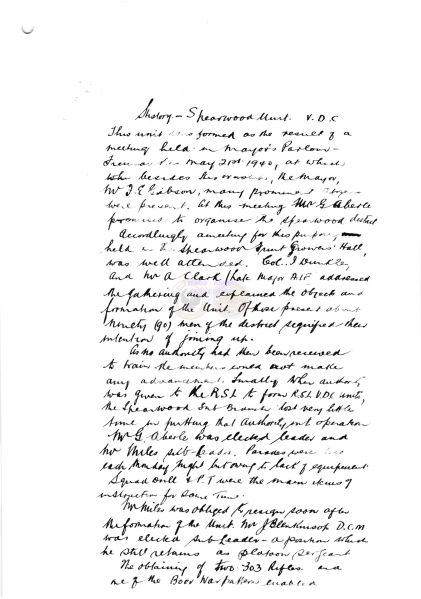 History - Spearwood Unit. V.D.C
This unit was formed as the result of a
meeting held in Mayor's Parlour
Fremantle May 21st 1940, at which
besides the Mayor,
Mr F.E. Gibson, many prominent
were present. At this meeting Mr G Aberle
promised to organise the Spearwood district
Accordingly a meeting for this purpose
held in the Spearwood Fruit Growers' Hall,
was well attended. Col.
and Mr A Clark (late Major AIF addressed
the gathering and explained the objects and
formation of the Unit. Of those present about
Ninety (90) men of the district signified their
intention of joining up.
As no authority had then been received
to train the members could not make
any advancement. Finally when authority
was given to the R.S.L to form R.S.L V.D.C units,
the Spearwood Sub Branch lost very little
time in putting that authority into operation
Mr G Aberle was elected leader and
Mr Miles sub-leader. Parades were
each Monday Night but owing to lack of equipment
Squad Drill & P.T were the main items of
instruction for some Time.
Mr Miles was obliged to resign soon after
the formation of the Unit. Mr J Blenkinsop D.C.M
was elected sub leader - a position which
he still retains as platoon sergeant
The obtaining of two .303 Rifles and
one of the Boer War pattern enabled